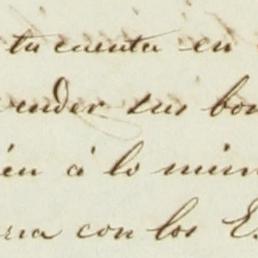 tu cuenta en
ender sus bon
ien á lo mism
ria con los Es